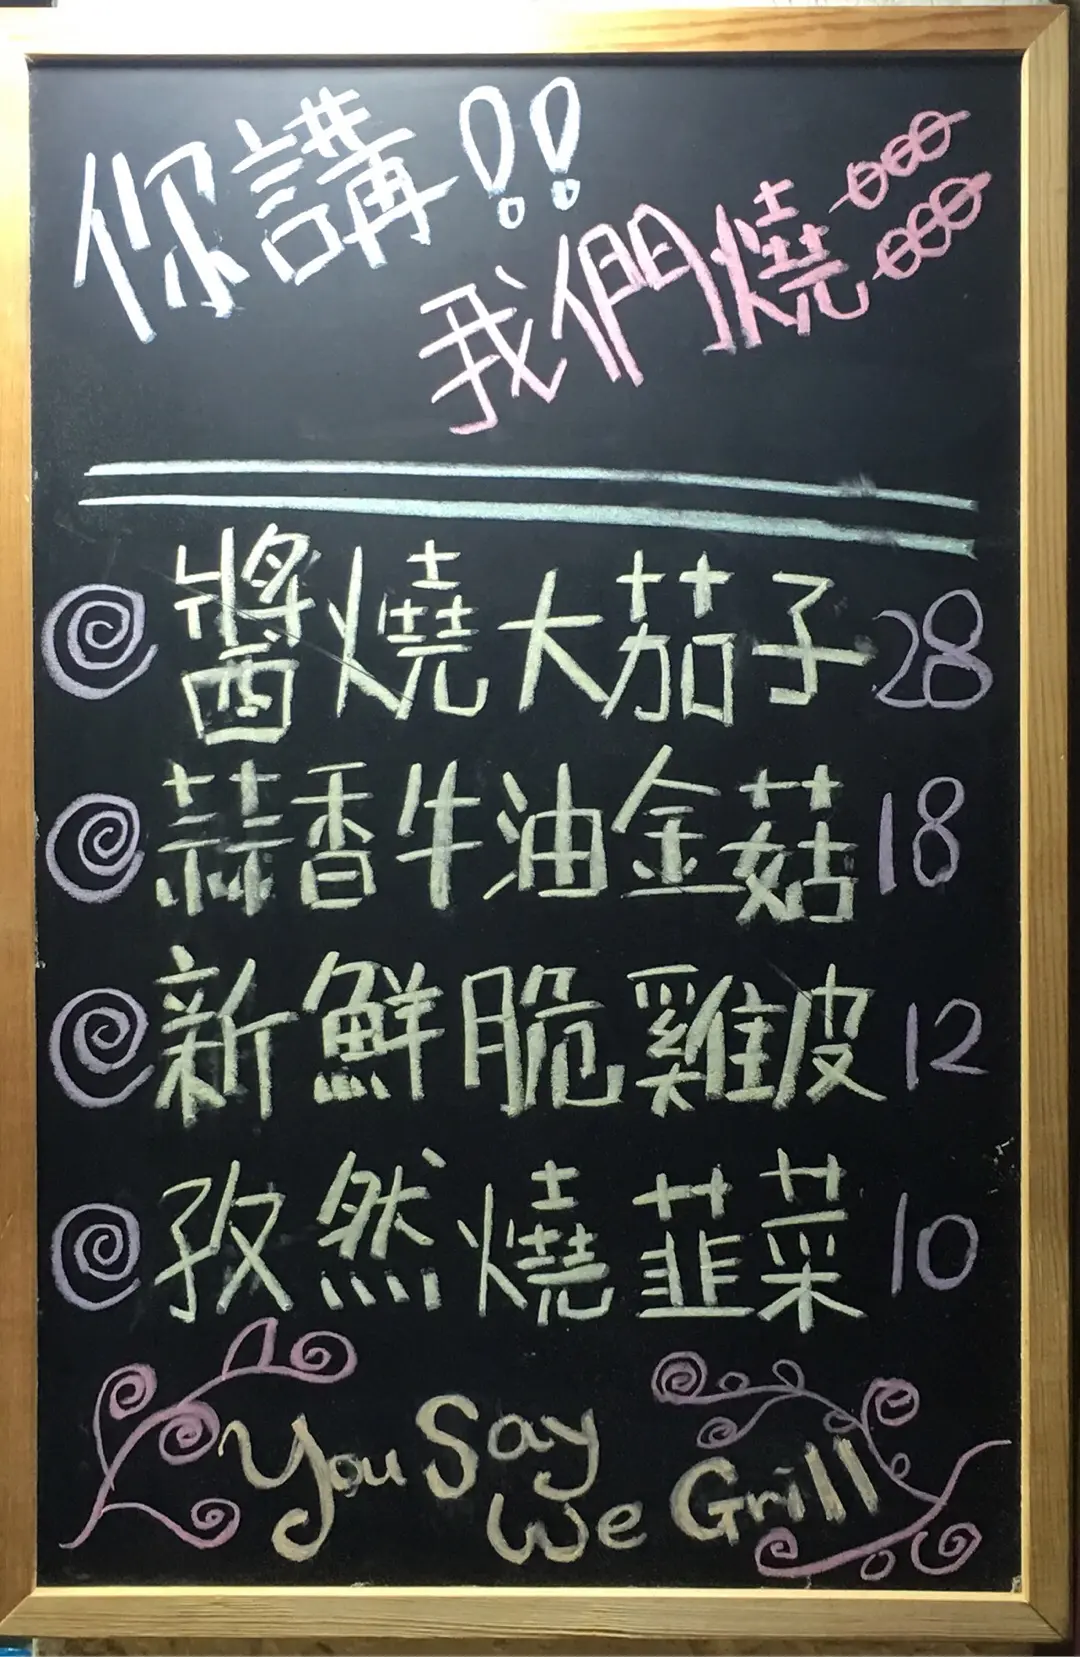 你講!!
我們燒
醬燒大茄子 28
蒜香牛油金菇 18
新鮮脆雞皮 12
孜然燒韮菜 10
You Say
We Grill